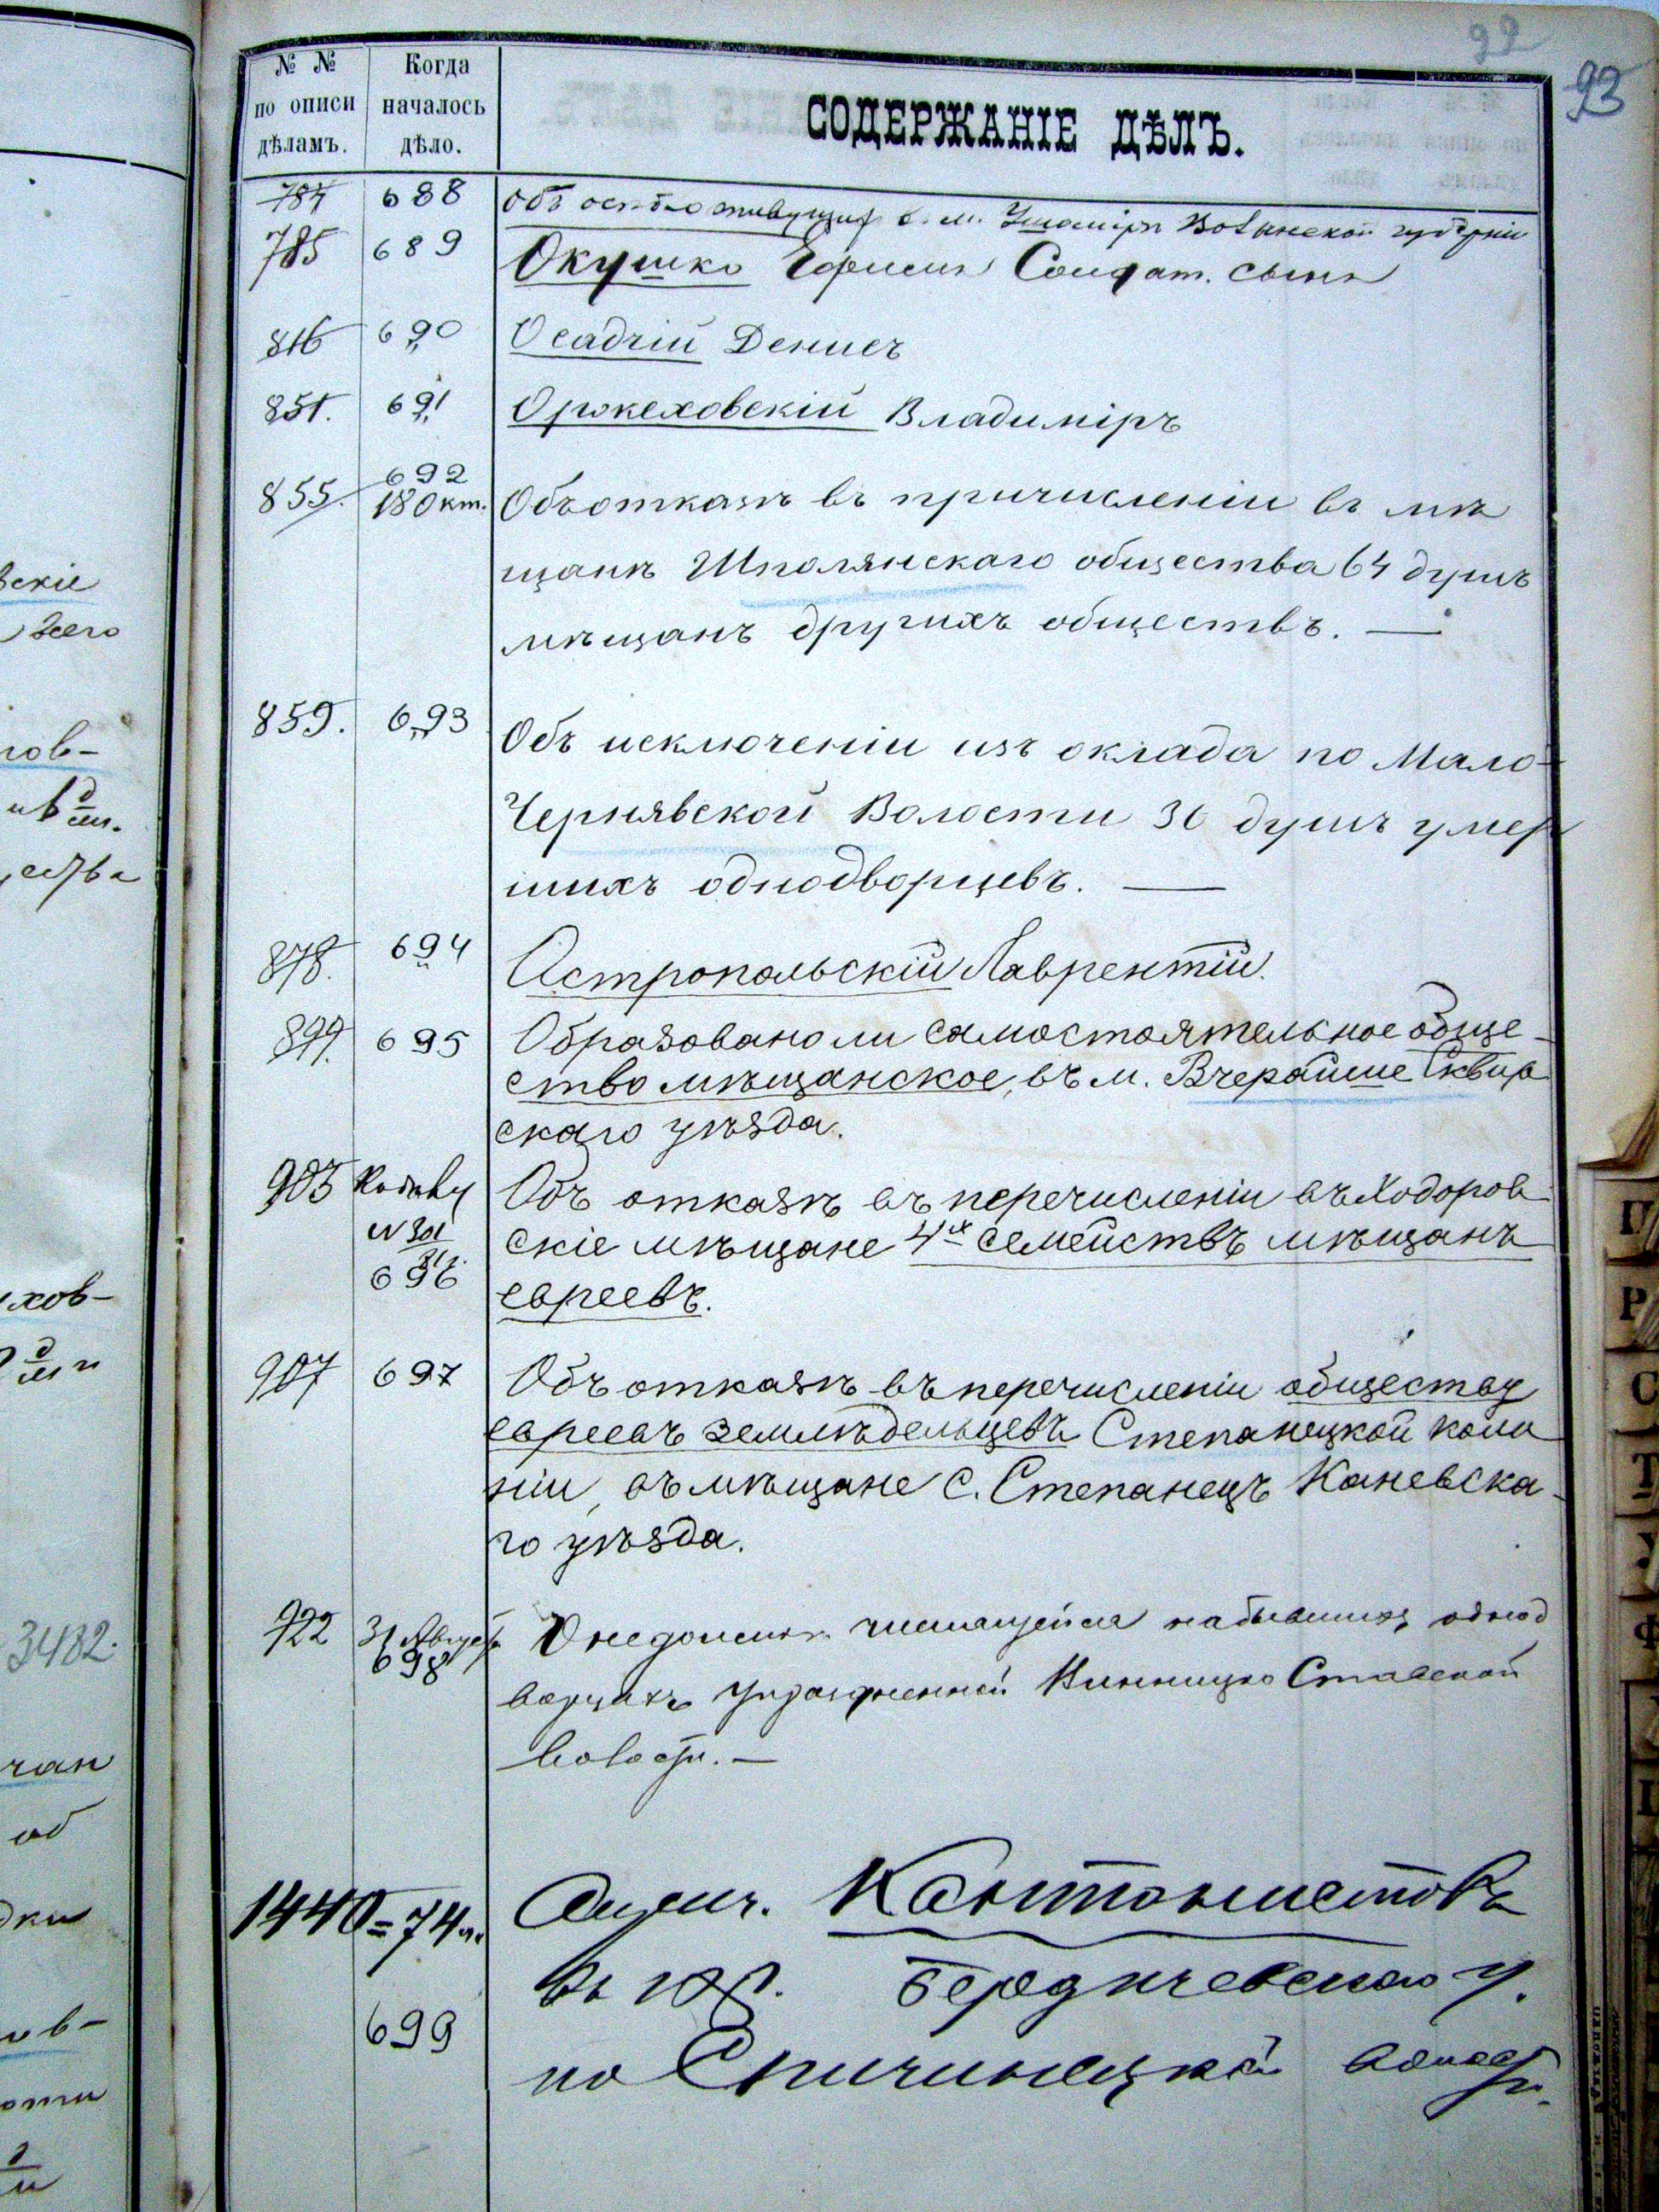 92
93
№ № по описи дѣламъ.
Когда началось дѣло.
СОДЕРЖАНІЕ ДѢЛЪ.
784 688 Объ живущихъ в м. Ушомірѣ Волынской губерніи
785 689 Окушко Ефимъ Солдат. сынъ
816 690 Осадчій Денисъ
851. 691 Оржеховскій Владиміръ
692
855. 18 Окт. Объ отказѣ въ причисленіи въ мѣ
щанѣ Шполянскаго общества 64 душъ
мѣщанъ другихъ обществъ. —
859. 693 Объ исключеніи изъ оклада по Мало-
Чернявской Волости 36 душъ умер
шихъ однодворцевъ. —
878. 694 Остропольскій Лаврентій.
899. 695 Образовано ли самостоятельное обще-
ство мѣщанское, въ м. Вчерайше Сквир
скаго уѣзда.
903 Объ отказѣ въ перечисленіи въ Ходоров
скіе мѣщане 4х семействъ мѣщанъ
696 евреевъ.
907 697 Объ отказѣ въ перечисленіи обществу
евреевъ земледѣльцевъ Степанецкой коло
ніи, въ мѣщане с. Степанецъ Каневска-
го уѣзда.
922 31 Августа О недоимкѣ числящейся на бывшихъ однод
698 ворцахъ упраздненной Винницко Ставской
волости. —
1440=74 г. Кантонистовъ
въ Бердичевскаго у.
699
по Спичинецкой волости.
вскіе
всего
нов-
ства
хов-
3482.
чан
об
дки
ив-
ости
П
Р
С
Т
У
Ф